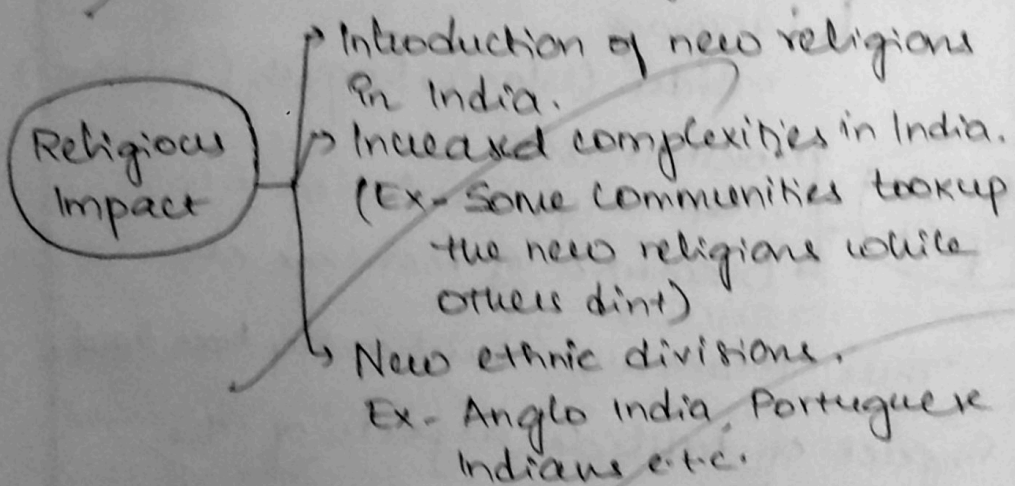 Introduction of new religions
in India.
Religious
Impact
Increased complexities in India.
(Ex- Some communities tookup
the new religions while
others dint)
New ethnic divisions.
Ex- Anglo India, Portuguese
Indians e.t.c.